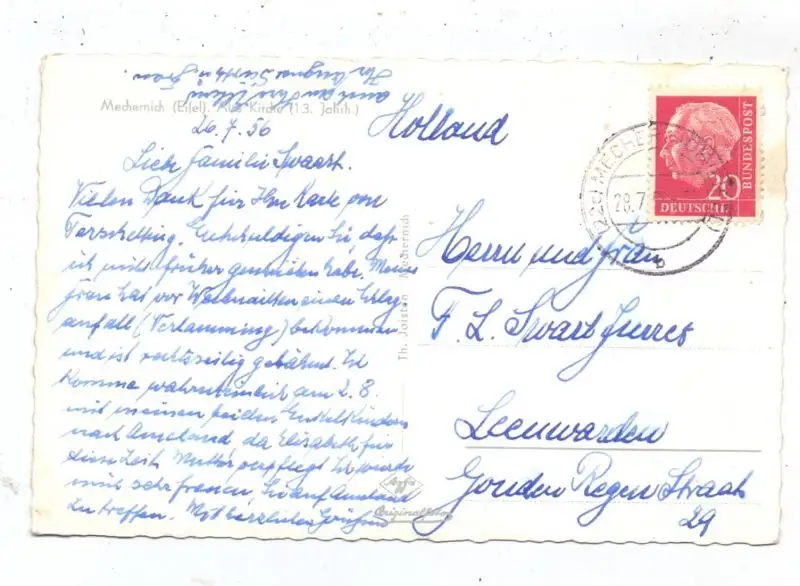 Mechernich (Eifel). Alte Kirche (13. Jahrh.)
26.7.56
Liebe Familie Swart.
Vielen Dank für Ihre Karte von
Terschelling. Entschuldigen Sie daß
ich nicht früher geschrieben habe. Meine
Frau hat vor Weihnachten einen Schlag
anfall (Verlammung) bekommen
und ist rechtsseitig gelähmt. Ich
komme wahrscheinlich am 2.8.
mit meinen beiden Enkelkindern
nach Ameland da Elisabeth für
diese Zeit Mutter pflegt. Ich würde
mich sehr freuen, Sie auf Ameland
zu treffen. Mit herzlichen Grüßen
auch an Ihre Eltern
Ihr Frau
Th. Joisten Mechernich
Agfa
Original
Holland
Herrn und Frau
F. L. Swart Jurres
Leenwarden
Gonden Regen Straat
29
MECHERNICH
28.7
b
20
DEUTSCHE
BUNDESPOST